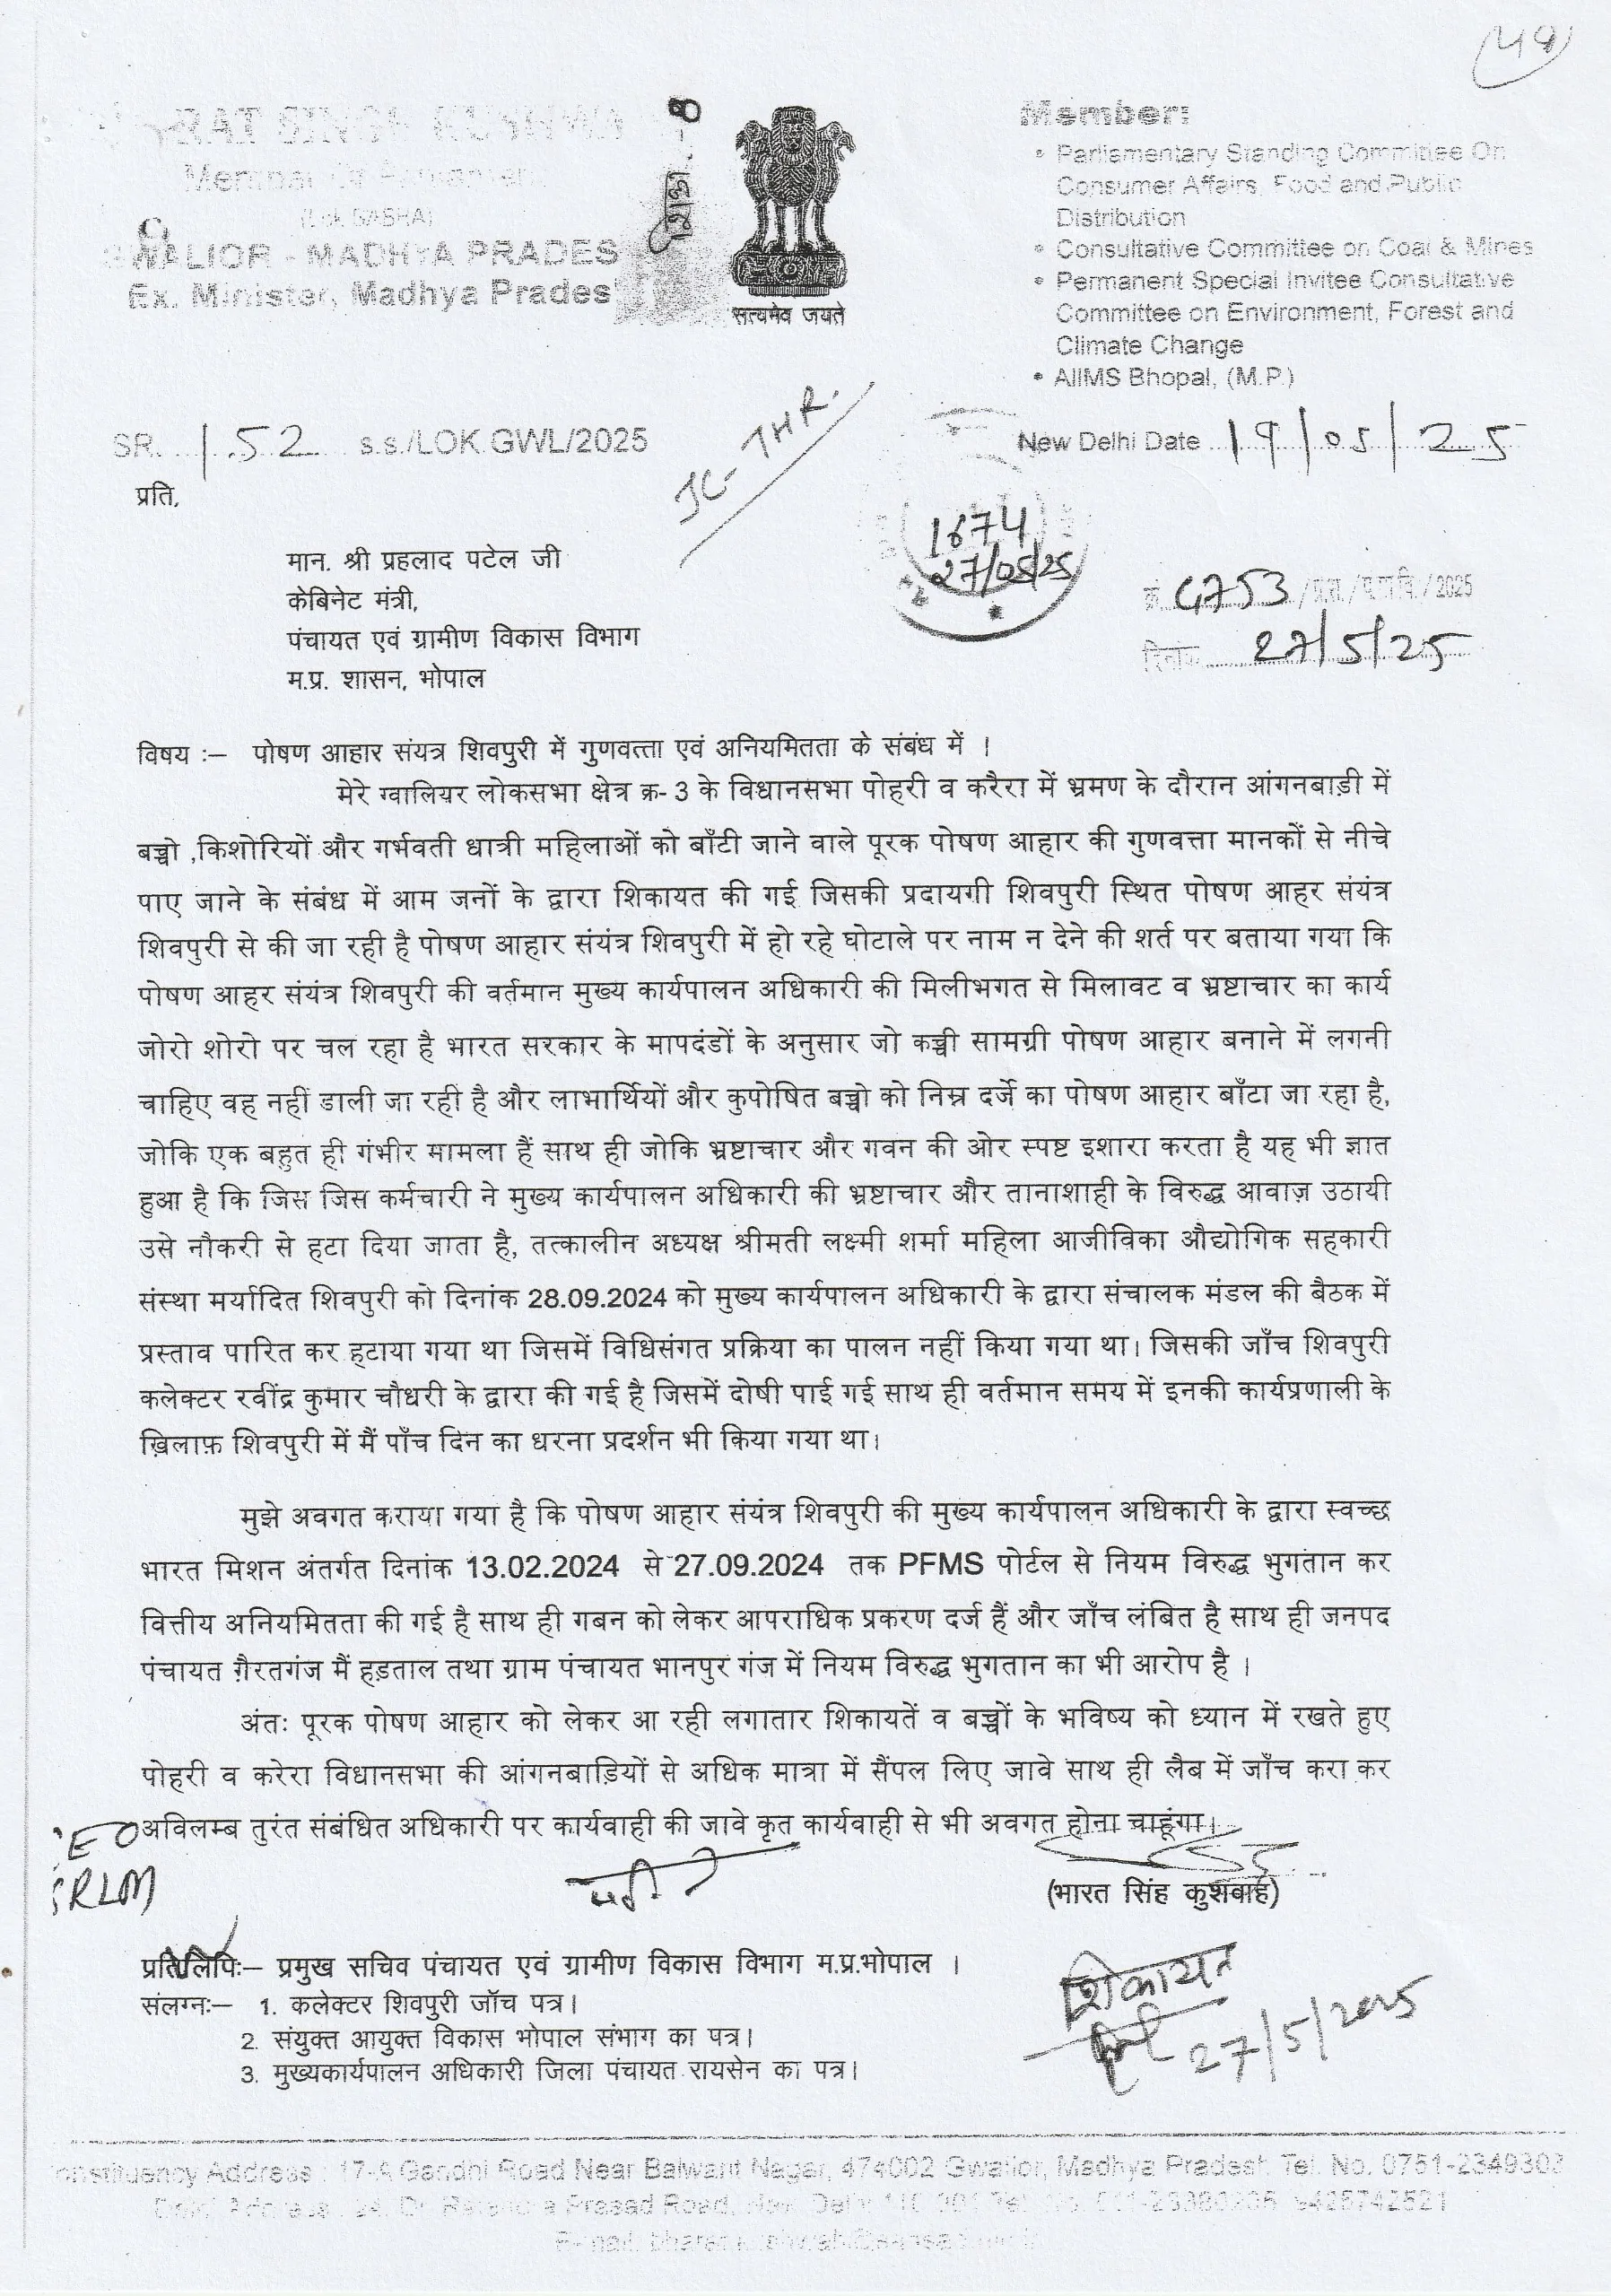 (49)
SINGH KUSHWA
Member Of Parliament
(Lok SABHA)
GWALIOR - MADHYA PRADES
Ex. Minister, Madhya Prades
सत्यमेव जयते
Member:
• Parliamentary Standing Committee On
Consumer Affairs, Food and Public
Distribution
• Consultative Committee on Coal & Mines
• Permanent Special Invitee Consultative
Committee on Environment, Forest and
Climate Change
• AIIMS Bhopal, (M.P.)
SR. 152 s.s./LOK.GWL/2025
New Delhi Date 19/05/25
JC-THR.
प्रति,
1674
27/05/25
मान. श्री प्रहलाद पटेल जी
केबिनेट मंत्री,
पंचायत एवं ग्रामीण विकास विभाग
म.प्र. शासन, भोपाल
क्र. 4753 /2025
दिनांक 27/5/25
विषय :– पोषण आहार संयत्र शिवपुरी में गुणवत्ता एवं अनियमितता के संबंध में ।
मेरे ग्वालियर लोकसभा क्षेत्र क्र- 3 के विधानसभा पोहरी व करैरा में भ्रमण के दौरान आंगनबाड़ी में
बच्चो ,किशोरियों और गर्भवती धात्री महिलाओं को बाँटी जाने वाले पूरक पोषण आहार की गुणवत्ता मानकों से नीचे
पाए जाने के संबंध में आम जनों के द्वारा शिकायत की गई जिसकी प्रदायगी शिवपुरी स्थित पोषण आहर संयंत्र
शिवपुरी से की जा रही है पोषण आहार संयंत्र शिवपुरी में हो रहे घोटाले पर नाम न देने की शर्त पर बताया गया कि
पोषण आहर संयंत्र शिवपुरी की वर्तमान मुख्य कार्यपालन अधिकारी की मिलीभगत से मिलावट व भ्रष्टाचार का कार्य
जोरो शोरो पर चल रहा है भारत सरकार के मापदंडों के अनुसार जो कच्ची सामग्री पोषण आहार बनाने में लगनी
चाहिए वह नहीं डाली जा रही है और लाभार्थियों और कुपोषित बच्चो को निम्न दर्जे का पोषण आहार बाँटा जा रहा है,
जोकि एक बहुत ही गंभीर मामला हैं साथ ही जोकि भ्रष्टाचार और गवन की ओर स्पष्ट इशारा करता है यह भी ज्ञात
हुआ है कि जिस जिस कर्मचारी ने मुख्य कार्यपालन अधिकारी की भ्रष्टाचार और तानाशाही के विरुद्ध आवाज़ उठायी
उसे नौकरी से हटा दिया जाता है, तत्कालीन अध्यक्ष श्रीमती लक्ष्मी शर्मा महिला आजीविका औद्योगिक सहकारी
संस्था मर्यादित शिवपुरी को दिनांक 28.09.2024 को मुख्य कार्यपालन अधिकारी के द्वारा संचालक मंडल की बैठक में
प्रस्ताव पारित कर हटाया गया था जिसमें विधिसंगत प्रक्रिया का पालन नहीं किया गया था। जिसकी जाँच शिवपुरी
कलेक्टर रवींद्र कुमार चौधरी के द्वारा की गई है जिसमें दोषी पाई गई साथ ही वर्तमान समय में इनकी कार्यप्रणाली के
ख़िलाफ़ शिवपुरी में मैं पाँच दिन का धरना प्रदर्शन भी किया गया था।
मुझे अवगत कराया गया है कि पोषण आहार संयंत्र शिवपुरी की मुख्य कार्यपालन अधिकारी के द्वारा स्वच्छ
भारत मिशन अंतर्गत दिनांक 13.02.2024 से 27.09.2024 तक PFMS पोर्टल से नियम विरुद्ध भुगतान कर
वित्तीय अनियमितता की गई है साथ ही गबन को लेकर आपराधिक प्रकरण दर्ज हैं और जाँच लंबित है साथ ही जनपद
पंचायत ग़ैरतगंज मैं हड़ताल तथा ग्राम पंचायत भानपुर गंज में नियम विरुद्ध भुगतान का भी आरोप है ।
अंतः पूरक पोषण आहार को लेकर आ रही लगातार शिकायतें व बच्चों के भविष्य को ध्यान में रखते हुए
पोहरी व करेरा विधानसभा की आंगनबाड़ियों से अधिक मात्रा में सैंपल लिए जावे साथ ही लैब में जाँच करा कर
अविलम्ब तुरंत संबंधित अधिकारी पर कार्यवाही की जावे कृत कार्यवाही से भी अवगत होना चाहूंगा।
EO
SRLM
(भारत सिंह कुशवाह)
प्रतिलिपिः– प्रमुख सचिव पंचायत एवं ग्रामीण विकास विभाग म.प्र.भोपाल ।
संलग्नः– 1. कलेक्टर शिवपुरी जॉच पत्र।
2. संयुक्त आयुक्त विकास भोपाल संभाग का पत्र।
3. मुख्यकार्यपालन अधिकारी जिला पंचायत रायसेन का पत्र।
शिकायत
27/5/2025
onstituency Address : 17-A Gandhi Road Near Balwant Nagar, 474002 Gwalior, Madhya Pradesh Tel. No. 0751-2349303